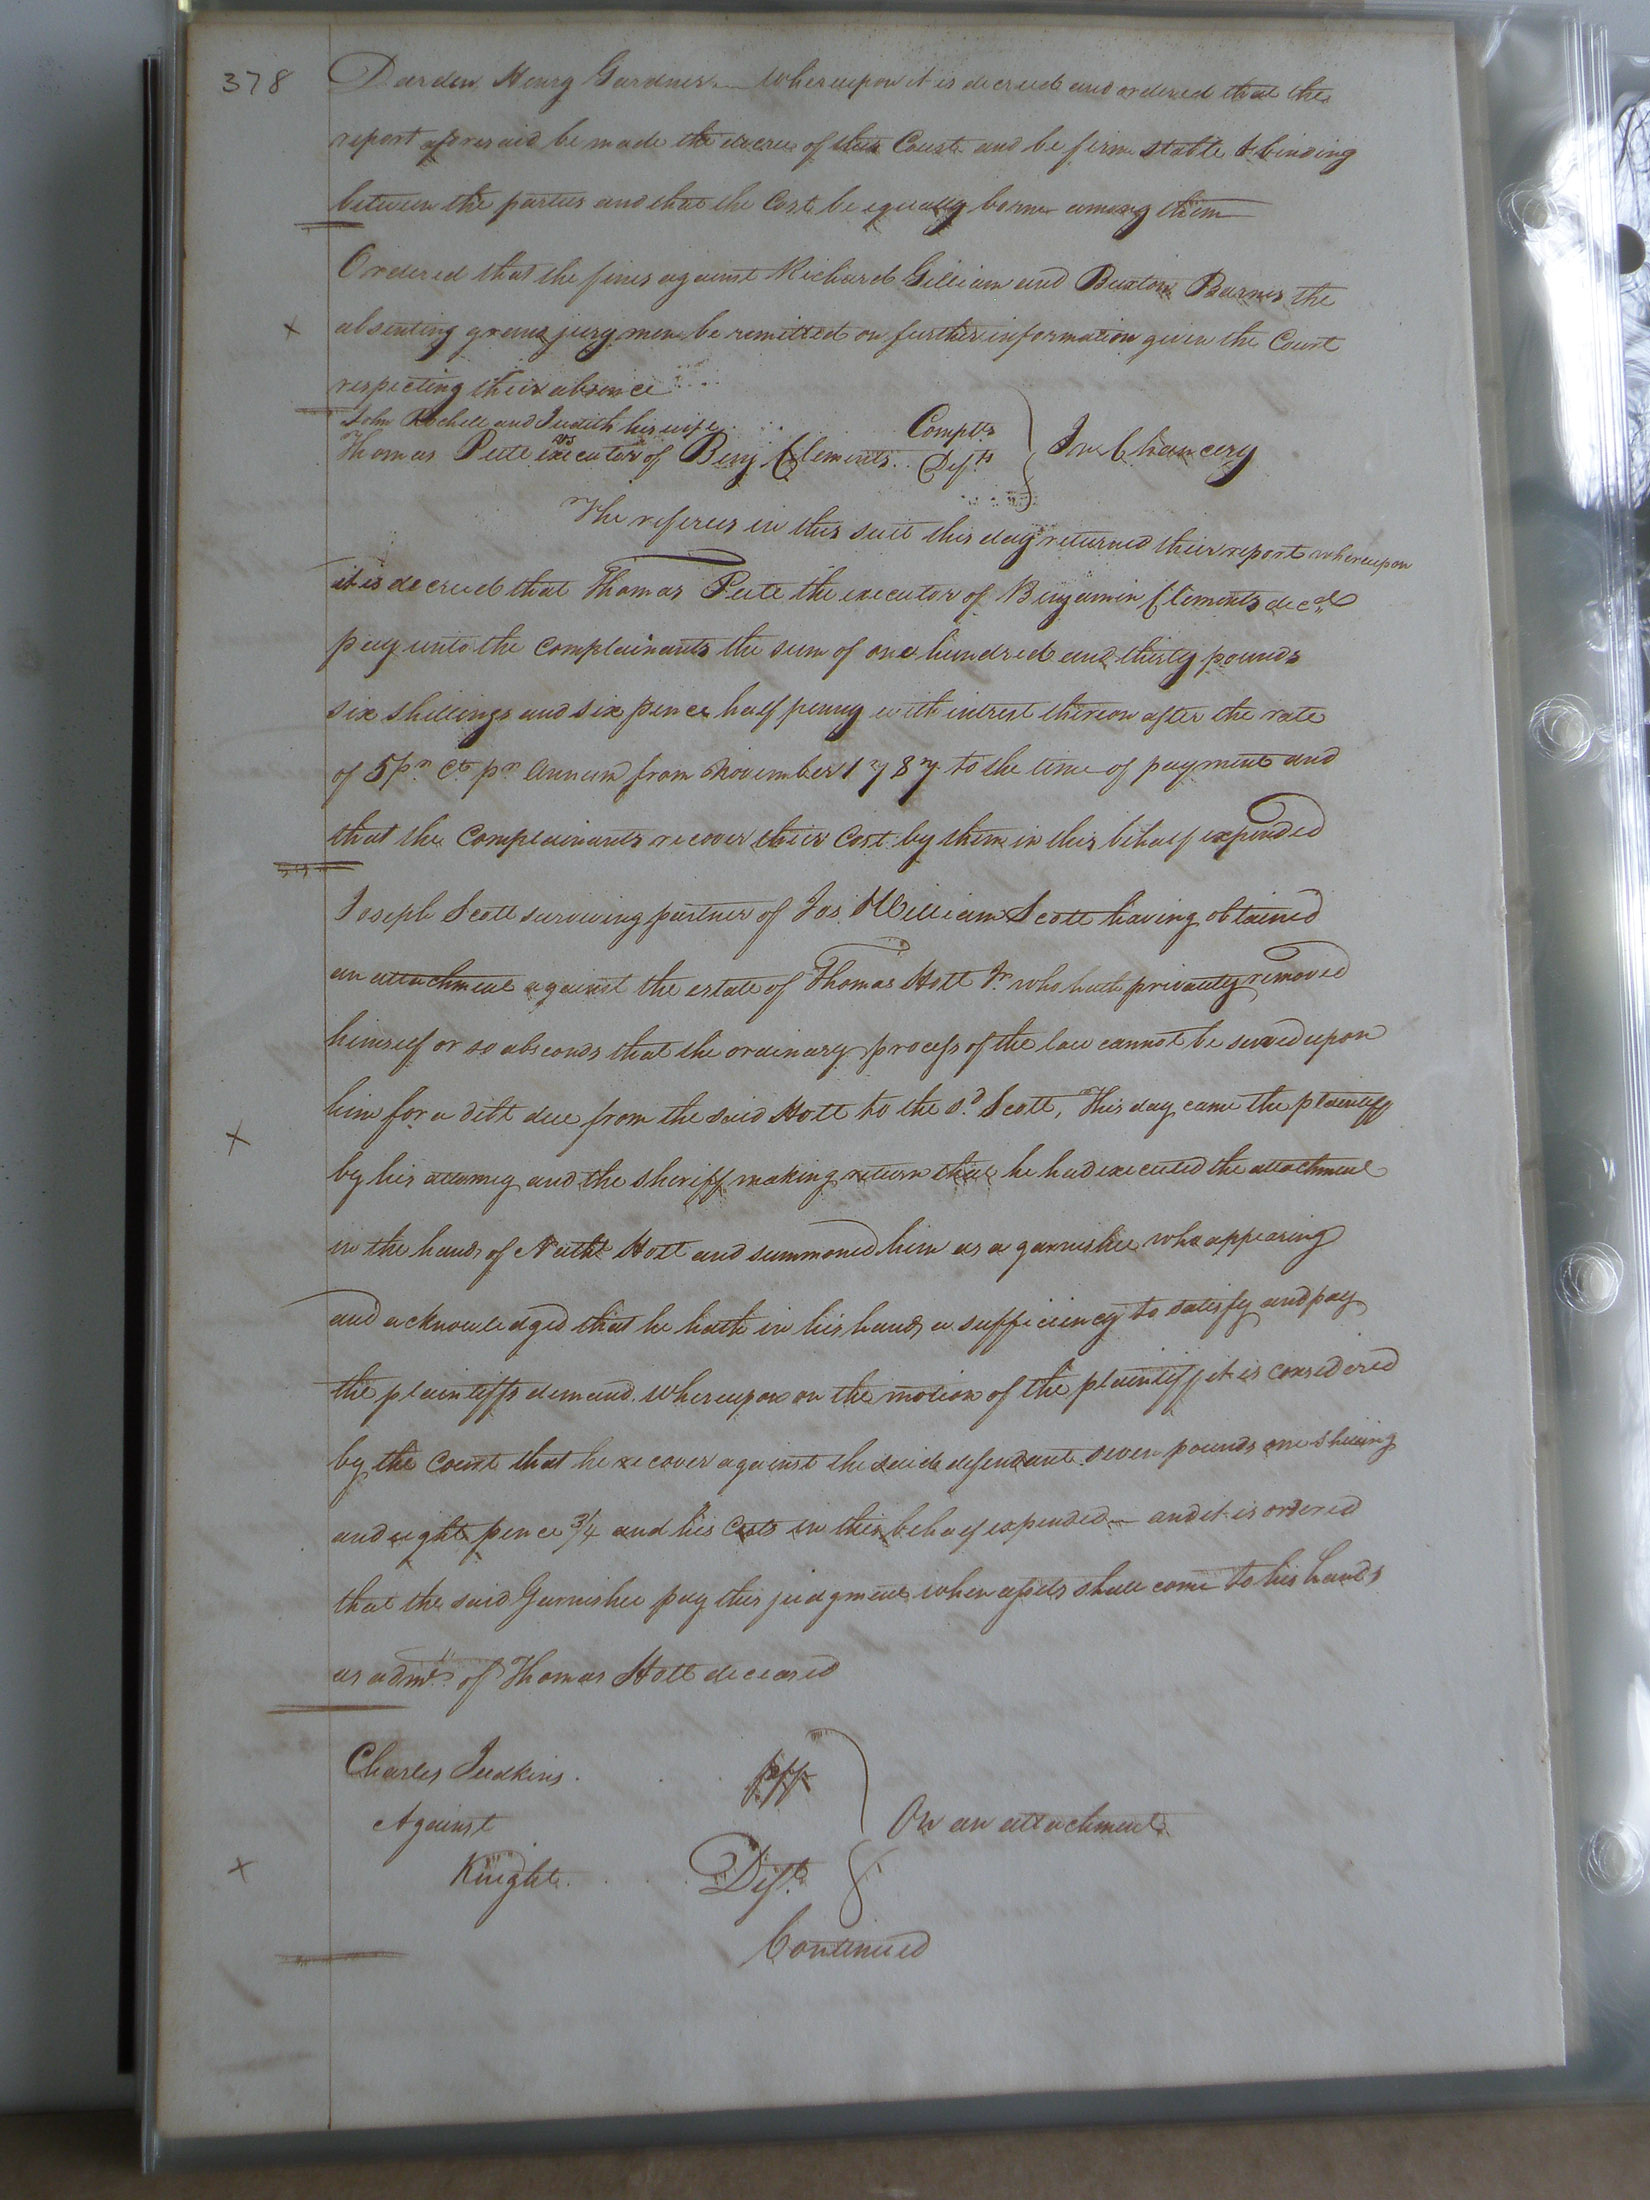 378
Darden, Henry Gardner — whereupon it is decreed and ordered that the
report aforesaid be made the decree of this Court and be firm stable & binding
between the parties and that the Cost be equally borne among them
Ordered that the fines against Richard Gilliam and Buxton Barnes the
absenting grand jury men be remitted on further information given the Court
respecting their absence
John Rochell and Judith his wife Complts
vs
Thomas Pete executor of Benj Clements Defts
In Chancery
The referees in this suit this day returned their report whereupon
it is decreed that Thomas Pete the executor of Benjamin Clements decd
pay unto the complainants the sum of one hundred and thirty pounds
six shillings and six pence half penny with intrest thereon after the rate
of 5 pr Ct pr annum from November 1787 to the time of payment and
that the Complainants recover their Cost by them in this behalf expended
Joseph Scott surviving partner of Jos William Scott having obtained
an attachment against the estate of Thomas Holt Jr who hath privately removed
himself or so absconds that the ordinary process of the law cannot be served upon
him for a debt due from the said Holt to the sd Scott, This day came the plaintiff
by his attorney and the sheriff making return that he had executed the attachment
in the hands of Nathl Holt and summoned him as a garnishee who appearing
and acknowledged that he hath in his hands a sufficiency to satisfy and pay
the plaintiffs demand. Whereupon on the motion of the plaintiff it is considered
by the Court that he recover against the said defendant seven pounds one shilling
and eight pence 3/4 and his Costs in this behalf expended — and it is ordered
that the said Garnishee pay this judgment when assets shall come to his hands
as admr. of Thomas Holt deceased
Charles Judkins . . . plff
Against
On an attachment
Knight . . . Deft.
Continued